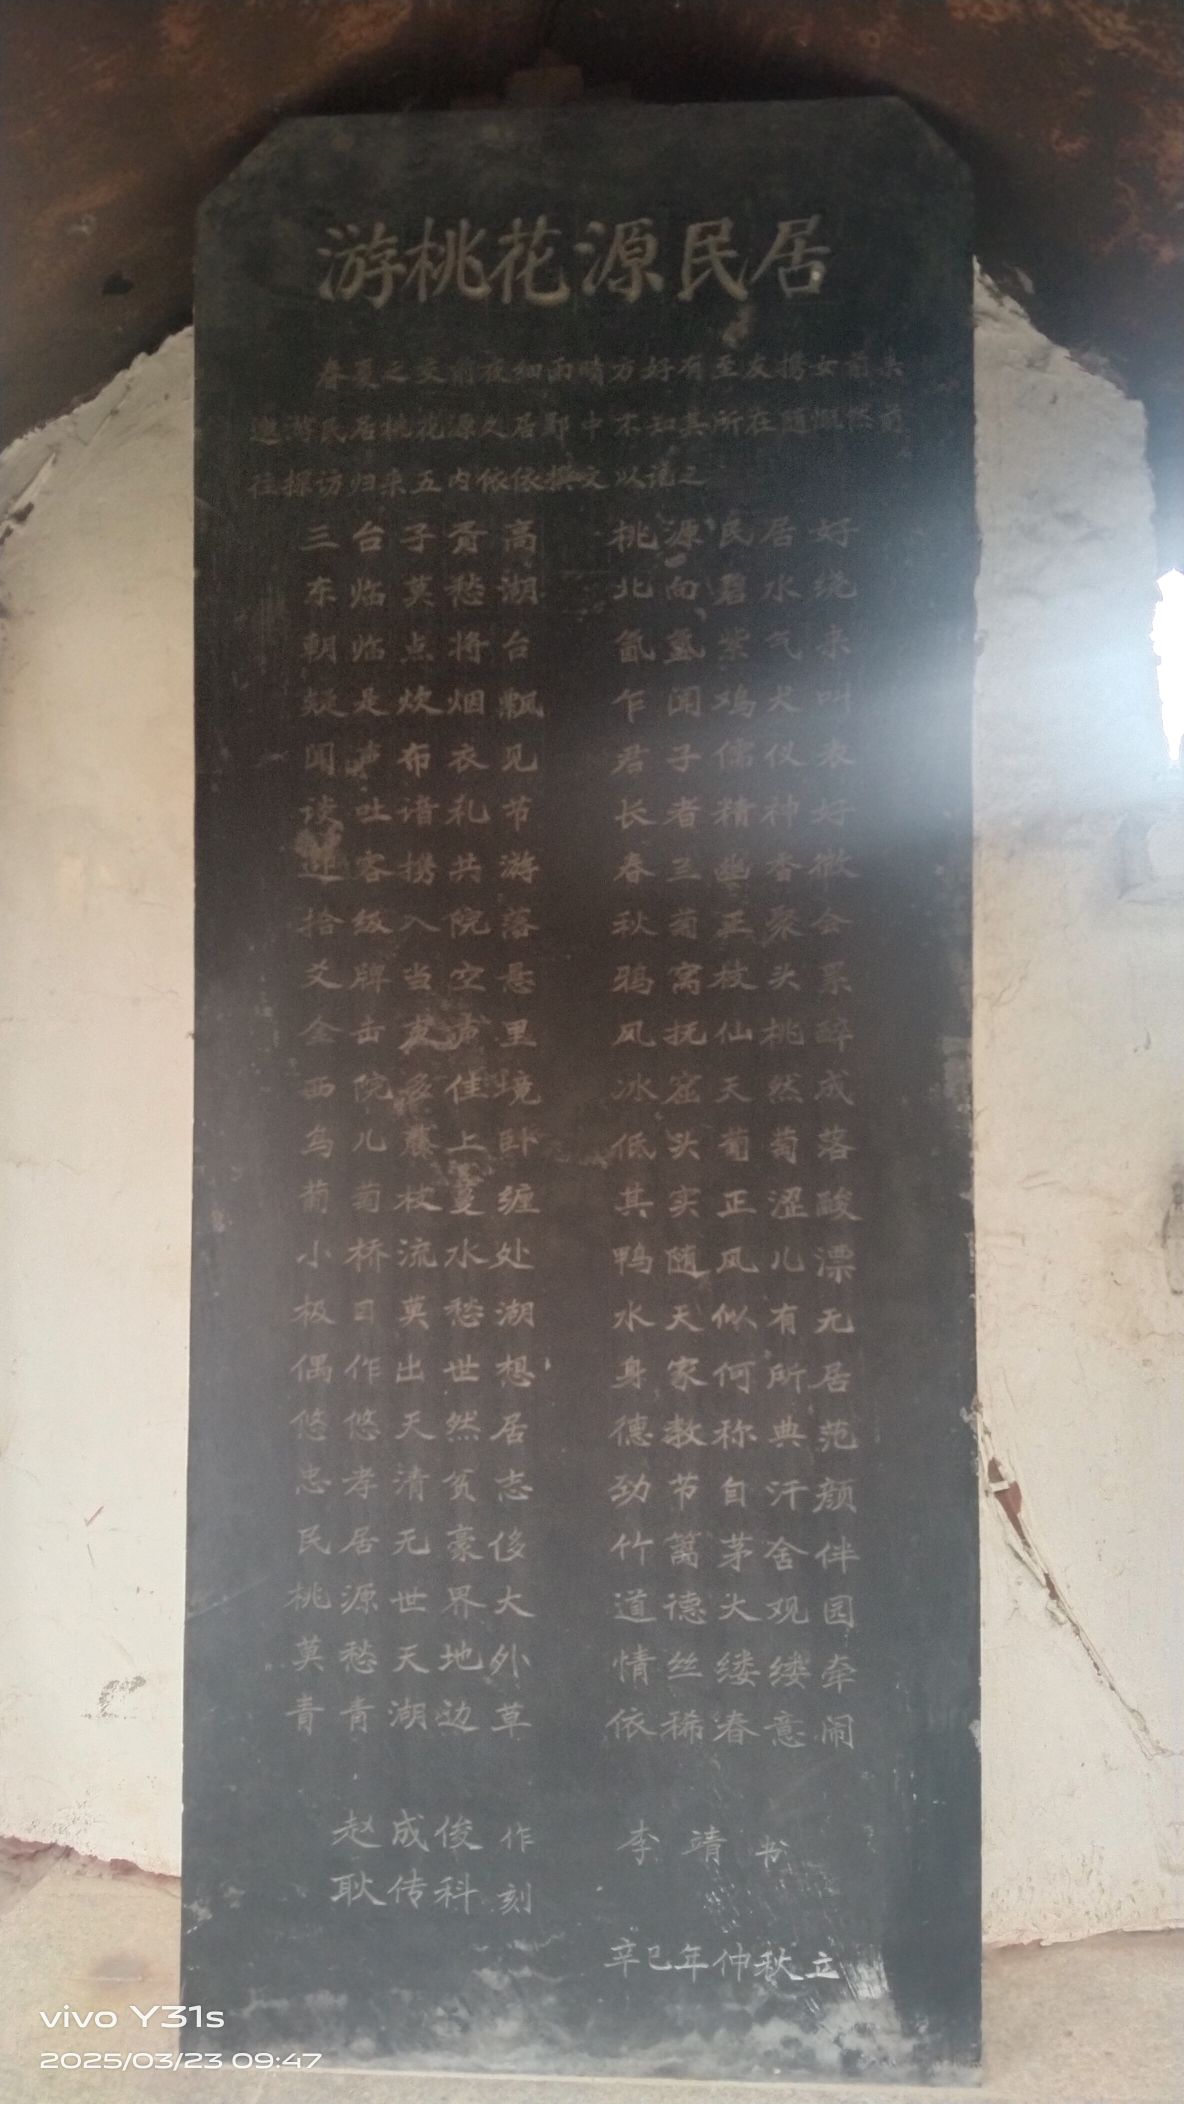 游桃花源民居
春夏之交前夜细雨晴方好有至友携女前来
邀游民居桃花源久居邺中不知其所在随慨然前
往探访归来五内依依撰文以记之
三台子贡高 桃源民居好
东临莫愁湖 北向碧水绕
朝临点将台 氤氲紫气来
疑是炊烟飘 乍闻鸡犬叫
闻声布衣见 君子儒仪表
谈吐谙礼节 长者精神好
迎客携共游 春兰幽香微
拾级入院落 秋菊正聚会
爻牌当空悬 鸦窝枝头累
金击声里 风抚仙桃醉
西院佳境 冰窑天然成
鸟儿藤上卧 低头葡萄落
葡萄枝蔓缠 其实正涩酸
小桥流水处 鸭随风儿漂
极目莫愁湖 水天似有无
偶作出世想 身家何所居
悠悠天然居 德教称典范
忠孝清贫志 劲节自汗颜
民居无豪侈 竹篱茅舍伴
桃源世界大 道德大观园
莫愁天地外 情丝缕缕牵
青青湖边草 依稀春意闹
赵成俊 作 李靖 书
耿传科 刻
辛巳年仲秋立
vivo Y31s
2025/03/23 09:47